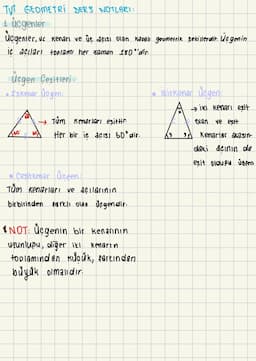 TYT GEOMETRİ DERS NOTLARI:
1. Üçgenler
Üçgenler, üç kenarı ve üç açısı olan kapalı geometrik şekillerdir. Üçgenin
iç açıları toplamı her zaman 180°'dir.
Üçgen Çeşitleri:
Eşkenar Üçgen:
Tüm kenarları eşittir.
Her bir iç açısı 60°'dir.
İkizkenar Üçgen:
İki kenarı eşit
olan ve eşit
kenarlar arasın-
daki açının da
eşit olduğu üçgen
Çeşitkenar Üçgen:
Tüm kenarları ve açılarının
birbirinden farklı olan üçgendir.
NOT: Üçgenin bir kenarının
uzunluğu, diğer iki kenarın
toplamından küçük, farkından
büyük olmalıdır.